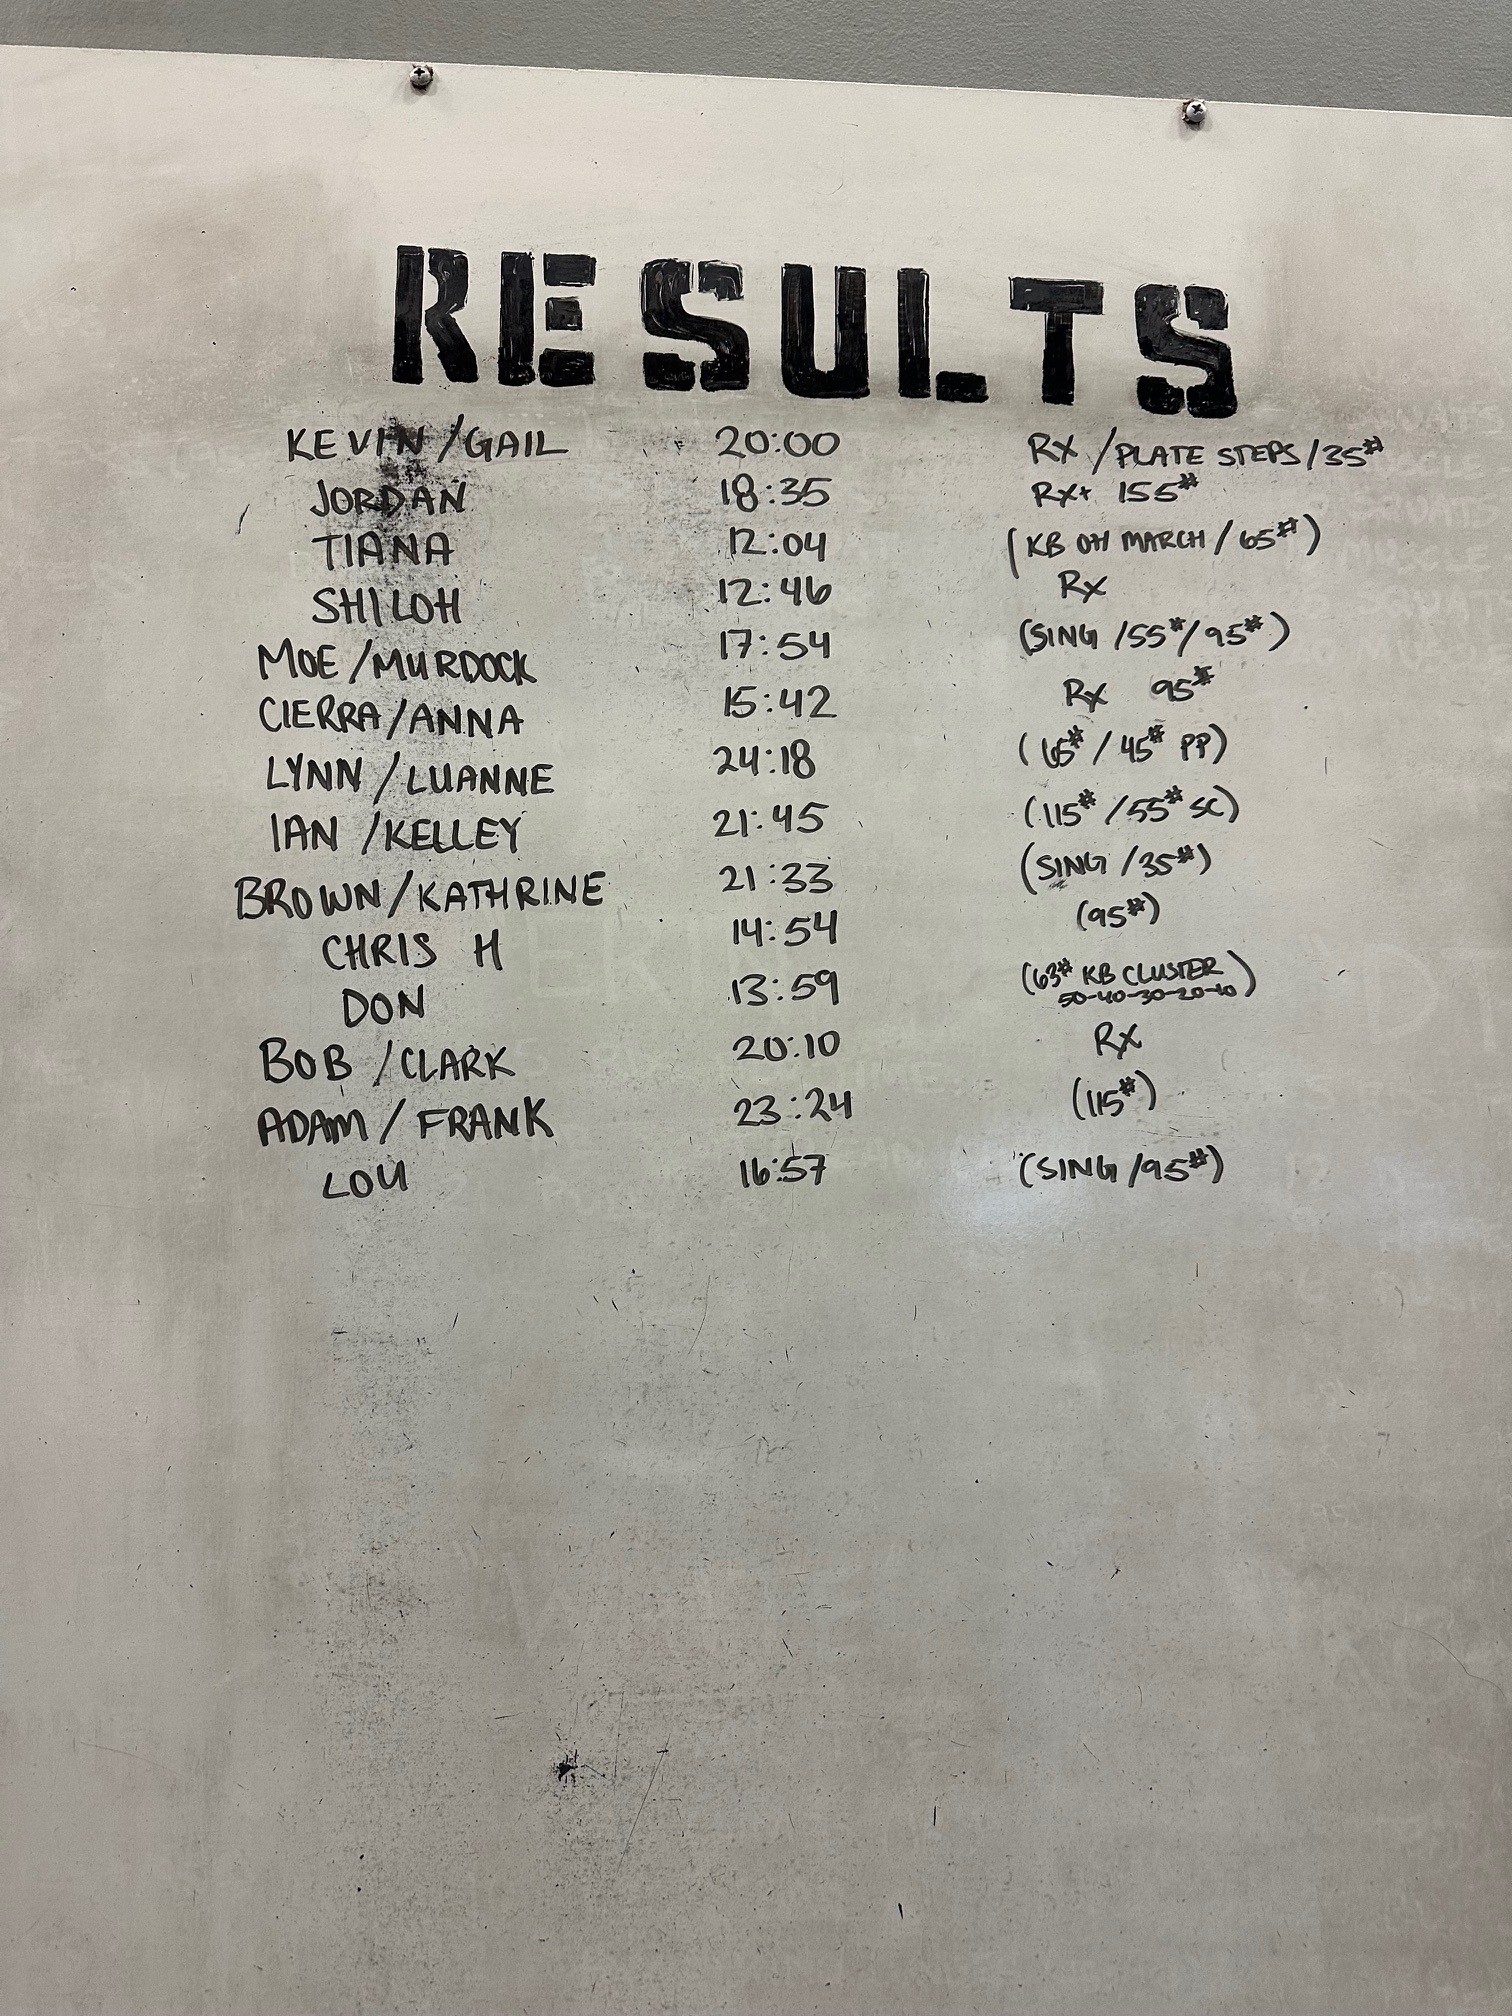 RESULTS
KEVIN/GAIL 20:00 RX/PLATE STEPS/35#
JORDAN 18:35 RX+ 155#
TIANA 12:04 (KB OH MARCH/65#)
SHILOH 12:46 RX
MOE/MURDOCK 17:54 (SING/55#/95#)
CIERRA/ANNA 15:42 RX 95#
LYNN/LUANNE 24:18 (65#/45# PP)
IAN/KELLEY 21:45 (115#/55# SC)
BROWN/KATHRINE 21:33 (SING/35#)
CHRIS H 14:54 (95#)
DON 13:59 (63# KB CLUSTER
50-40-30-20-10)
BOB/CLARK 20:10 RX
ADAM/FRANK 23:24 (115#)
LOU 16:57 (SING/95#)